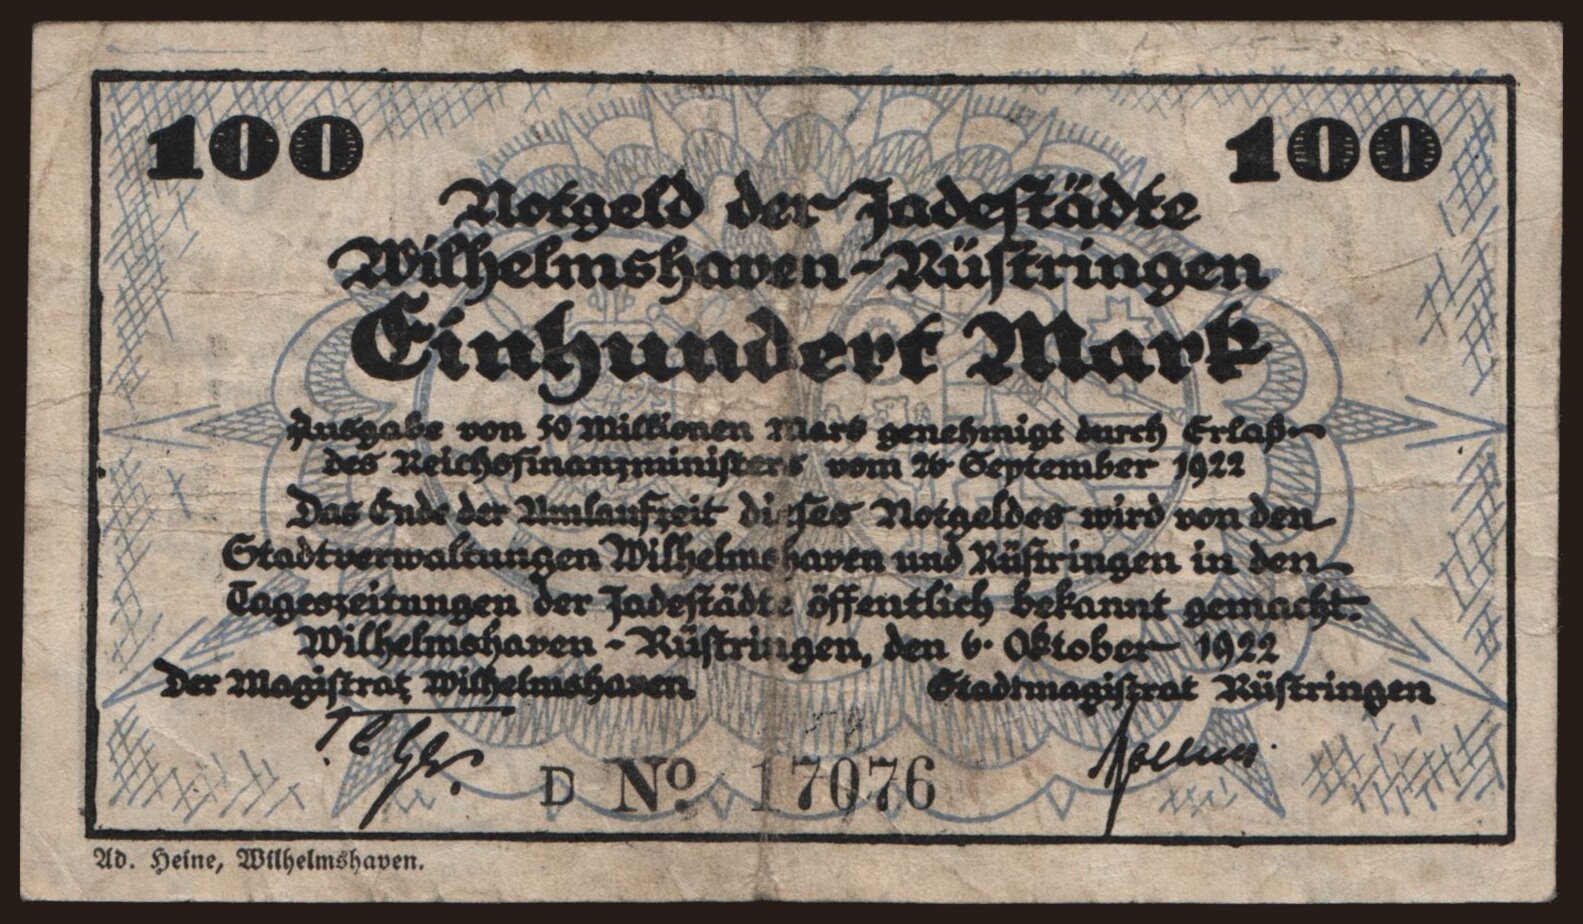 100 100
Notgeld der Jadestädte
Wilhelmshaven-Rüstringen
Einhundert Mark
Ausgabe von 50 Millionen Mark genehmigt durch Erlaß
des Reichsfinanzministers vom 26. September 1922
Das Ende der Umlaufzeit dieses Notgeldes wird von den
Stadtverwaltungen Wilhelmshaven und Rüstringen in den
Tageszeitungen der Jadestädte öffentlich bekannt gemacht.
Wilhelmshaven-Rüstringen, den 6. Oktober 1922
Der Magistrat Wilhelmshaven Stadtmagistrat Rüstringen
D No. 17076
Ad. Heine, Wilhelmshaven.